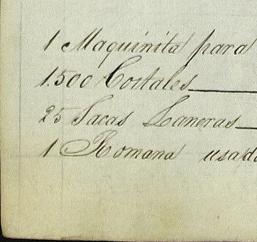 1 Maquinita para
1.500 Costales
25 Sacas Laneras
1 Romana usada